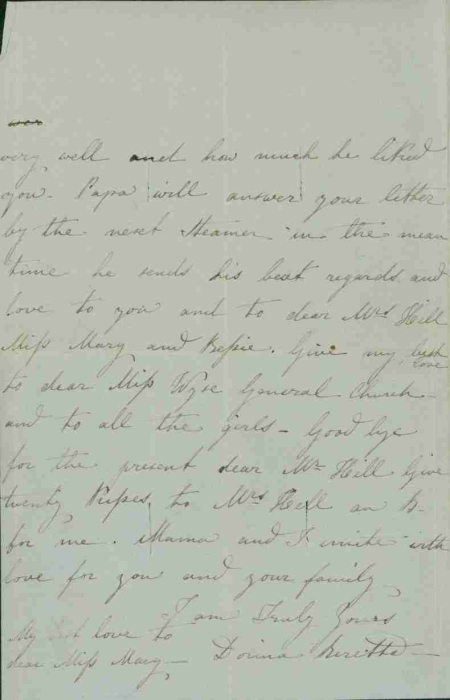 very well and how much he liked
you. Papa will answer your letter
by the next Steamer in the mean
time he sends his best regards and
love to you and to dear Mrs Hill
Miss Mary and Bessie. Give my best
love
to dear Miss Wyse General Church
and to all the girls - Good bye
for the present dear Mr Hill Give
twenty Kisses to Mrs Hill an B.
for me. Mama and I unite with
love for you and your family
I am Truly Yours
My best love to
dear Miss Mary - Dorina